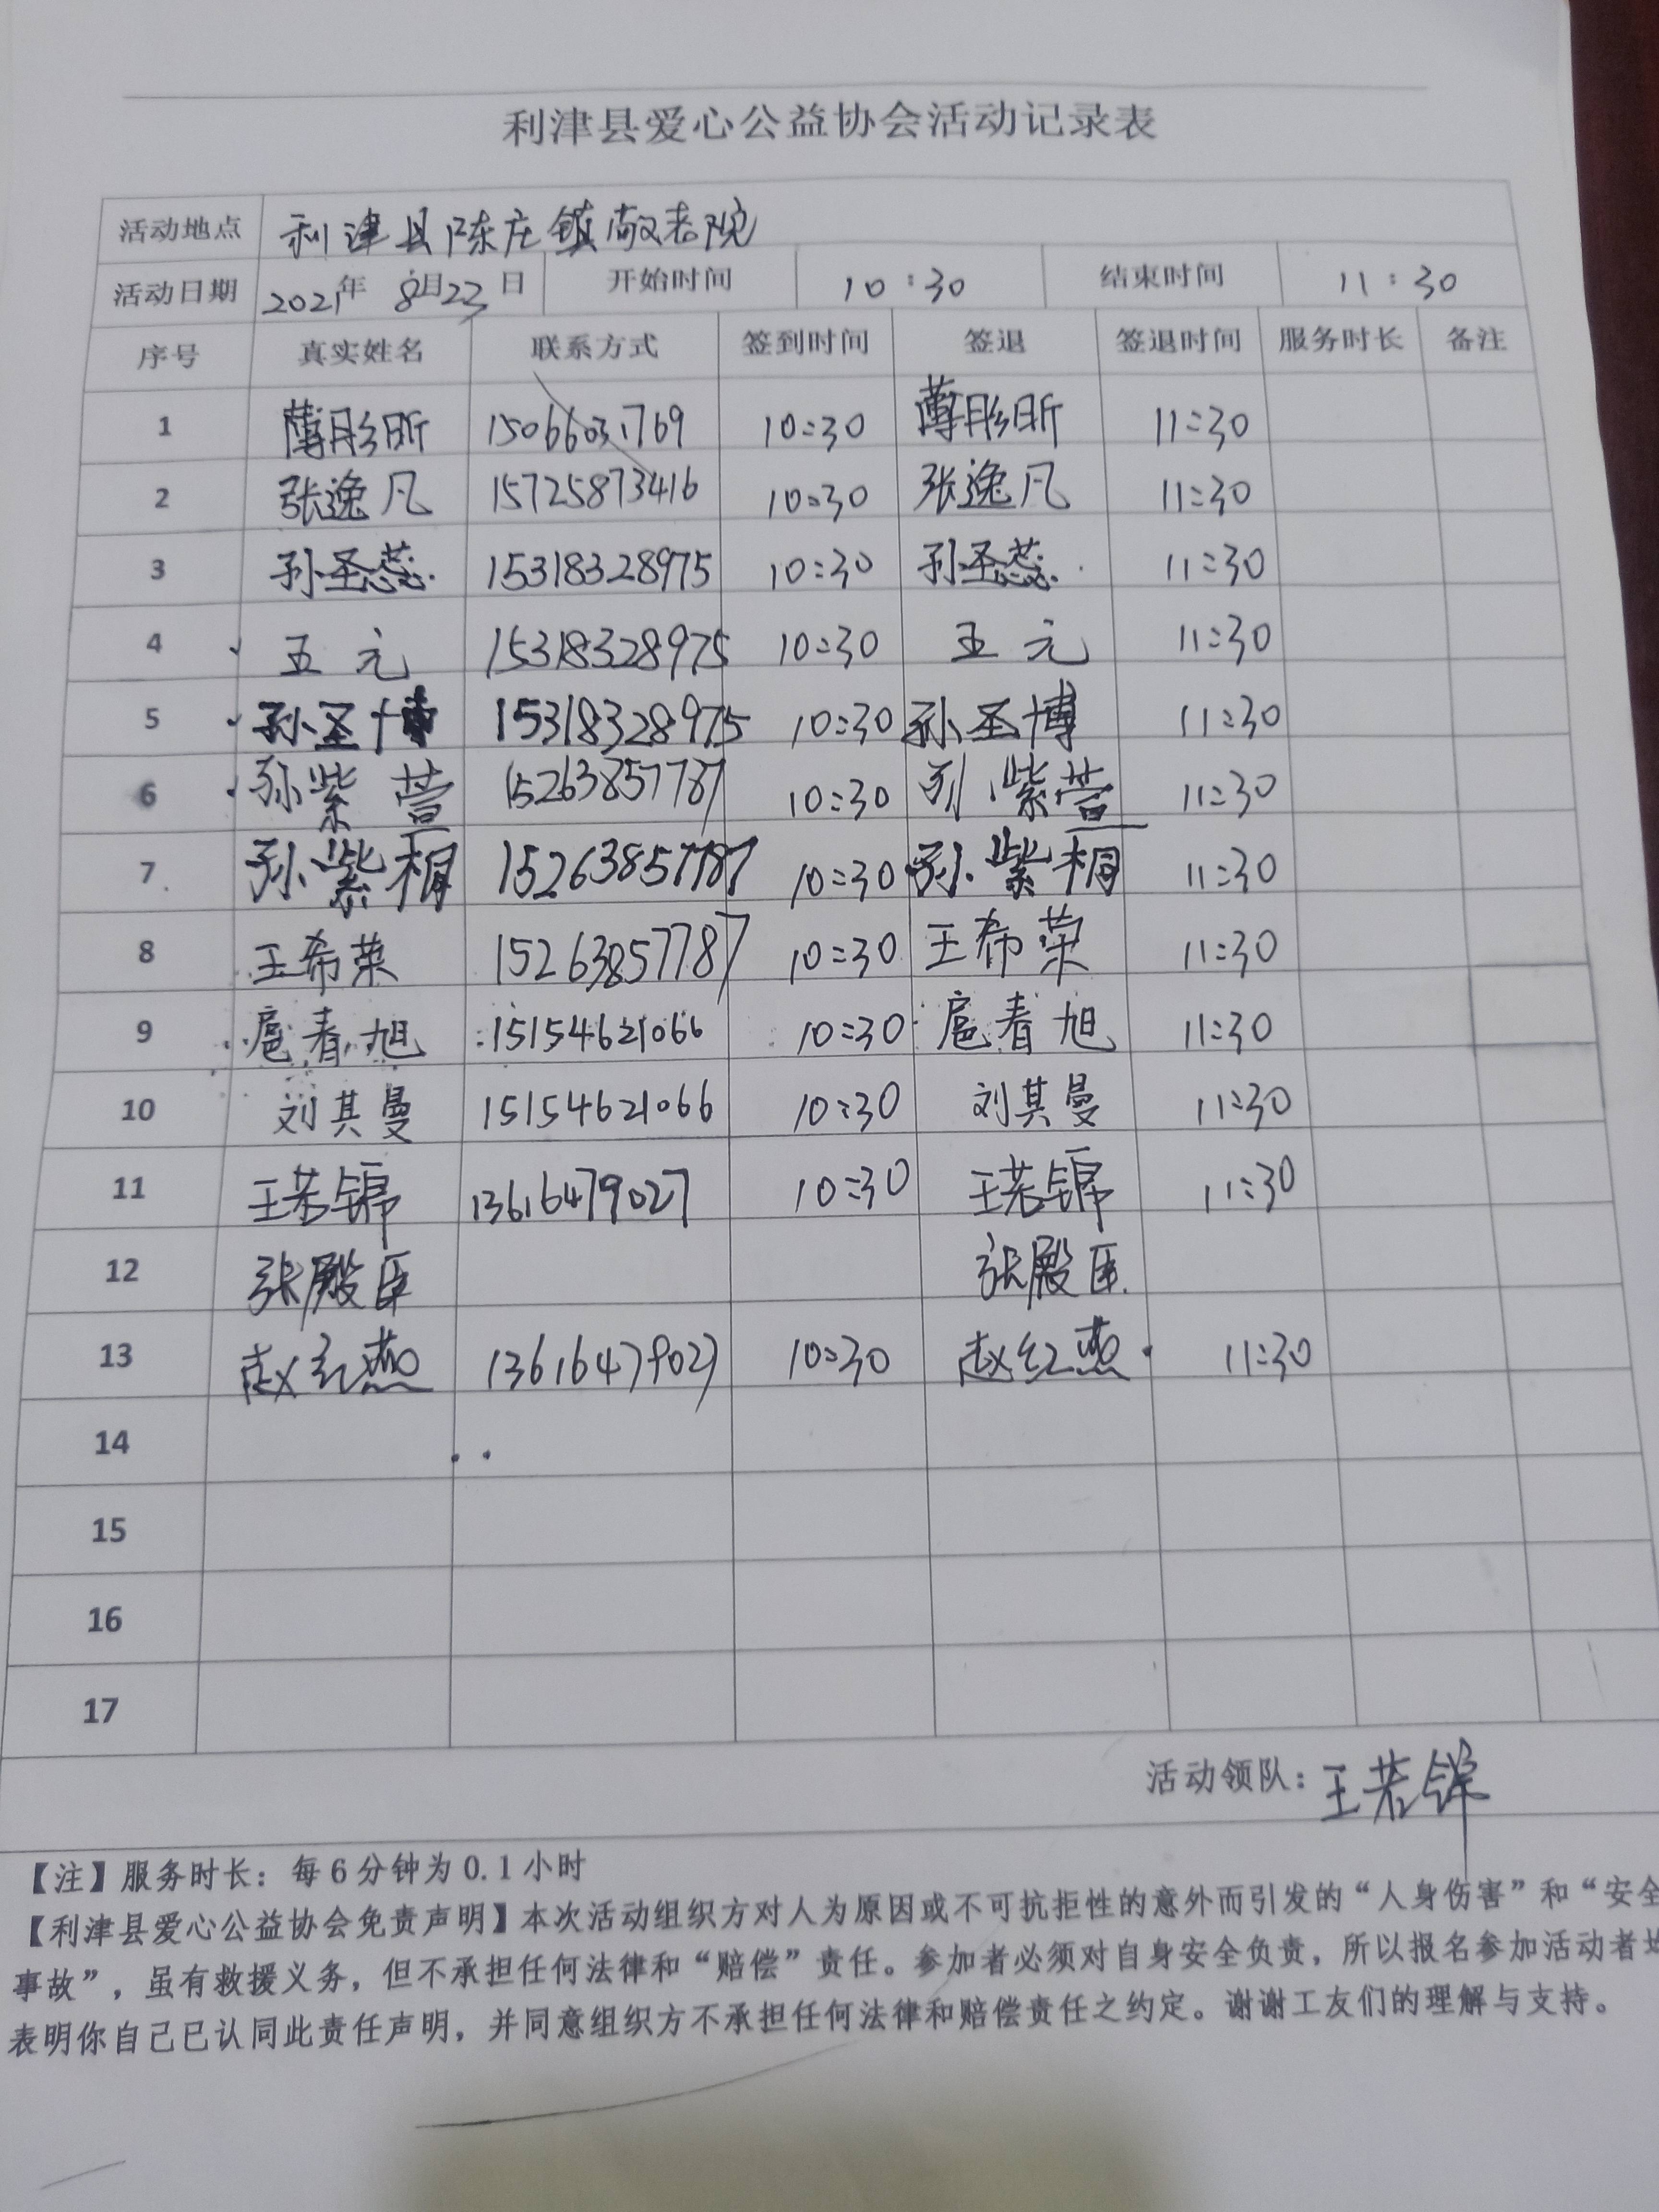 利津县爱心公益协会活动记录表
活动地点 利津县陈庄镇敬老院
活动日期 2021年 8月23日 开始时间 10:30 结束时间 11:30
序号 真实姓名 联系方式 签到时间 签退 签退时间 服务时长 备注
1 薄彤昕 15066031769 10:30 薄彤昕 11:30
2 张逸凡 15725873416 10:30 张逸凡 11:30
3 孙圣蕊 15318328975 10:30 孙圣蕊 11:30
4 王元 15318328975 10:30 王元 11:30
5 孙圣博 15318328975 10:30 孙圣博 11:30
6 孙紫萱 15263857787 10:30 孙紫萱 11:30
7 孙紫桐 15263857787 10:30 孙紫桐 11:30
8 王希荣 15263857787 10:30 王希荣 11:30
9 扈春旭 15154621066 10:30 扈春旭 11:30
10 刘其曼 15154621066 10:30 刘其曼 11:30
11 王若锦 13616479027 10:30 王若锦 11:30
12 张殿臣 张殿臣
13 赵红燕 13616479027 10:30 赵红燕 11:30
14
15
16
17
活动领队：王若锦
【注】服务时长：每6分钟为0.1小时
【利津县爱心公益协会免责声明】本次活动组织方对人为原因或不可抗拒性的意外而引发的“人身伤害”和“安全
事故”，虽有救援义务，但不承担任何法律和“赔偿”责任。参加者必须对自身安全负责，所以报名参加活动者均
表明你自己已认同此责任声明，并同意组织方不承担任何法律和赔偿责任之约定。谢谢工友们的理解与支持。